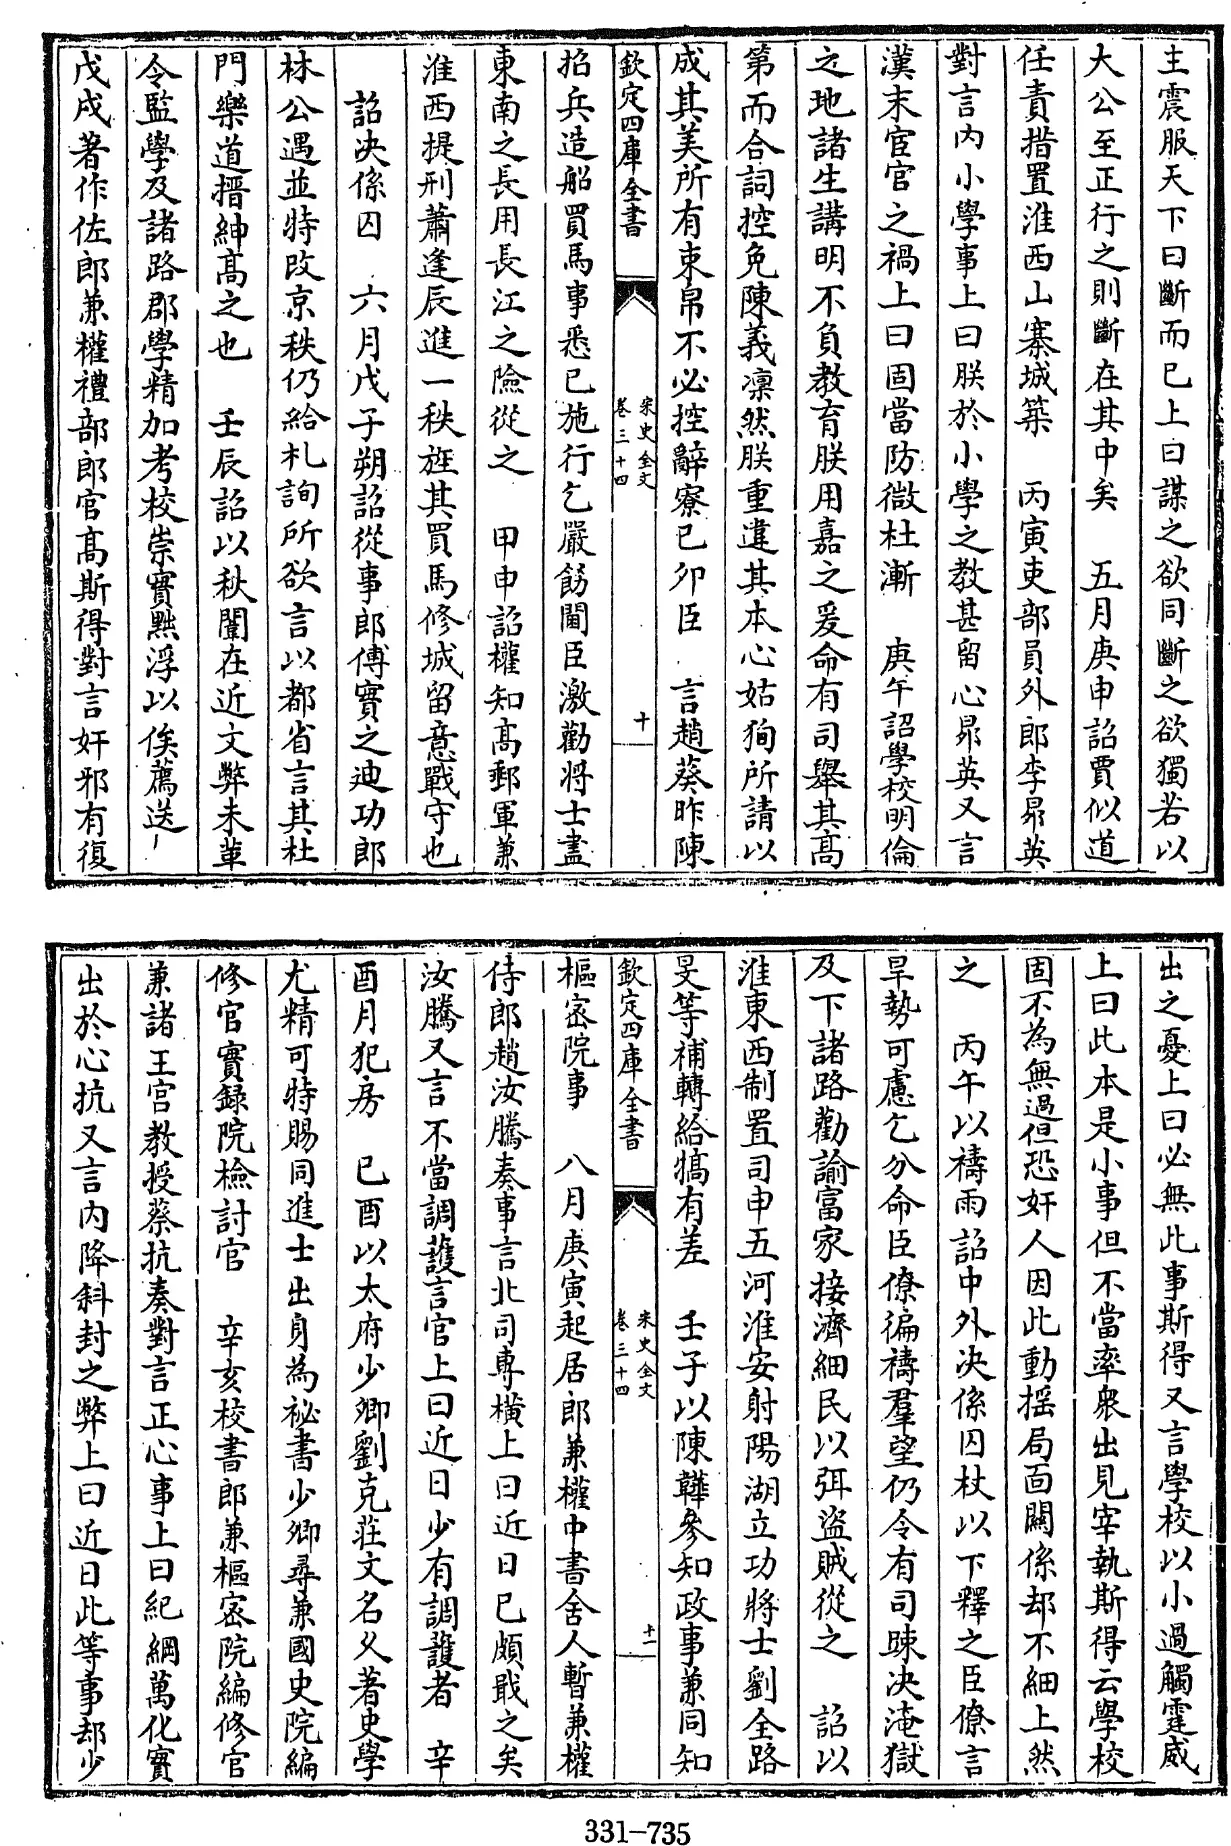 主震服天下曰斷而已上曰謀之欲同斷之欲獨若以
大公至正行之則斷在其中矣　五月庚申詔賈似道
任責措置淮西山寨城築　丙寅吏部員外郎李昴英
對言内小學事上曰朕於小學之教甚留心昴英又言
漢末宦官之禍上曰固當防微杜漸　庚午詔學校明倫
之地諸生講明不負教育朕用嘉之爰命有司舉其髙
第而合詞控免陳義凜然朕重違其本心姑狥所請以
成其美所有束帛不必控辭寮已卯臣　言趙葵昨陳
欽定四庫全書
宋史全文
卷三十四
十
招兵造船買馬事悉已施行乞嚴飭閫臣激勸將士盡
東南之長用長江之險從之　甲申詔權知髙郵軍兼
淮西提刑蕭逢辰進一秩旌其買馬修城留意戰守也
詔決係囚　六月戊子朔詔從事郎傅實之迪功郎
林公遇並特改京秩仍給札詢所欲言以都省言其杜
門樂道搢紳髙之也　壬辰詔以秋闈在近文弊未革
令監學及諸路郡學精加考校崇實黜浮以俟薦送
戊戌著作佐郎兼權禮部郎官髙斯得對言奸邪有復
出之憂上曰必無此事斯得又言學校以小過觸霆威
上曰此本是小事但不當率衆出見宰執斯得云學校
固不為無過但恐奸人因此動揺局面闗係却不細上然
之　丙午以禱雨詔中外决係囚杖以下釋之臣僚言
旱勢可慮乞分命臣僚徧禱羣望仍令有司踈决淹獄
及下諸路勸諭富家接濟細民以弭盜賊從之　詔以
淮東西制置司申五河淮安射陽湖立功將士劉全路
旻等補轉給犒有差　壬子以陳韡參知政事兼同知
欽定四庫全書
宋史全文
卷三十四
十一
樞宻院事　八月庚寅起居郎兼權中書舍人暫兼權
侍郎趙汝騰奏事言北司専橫上曰近日已頗戢之矣
汝騰又言不當調䕶言官上曰近日少有調䕶者　辛
酉月犯房　已酉以太府少卿劉克荘文名久著史學
尤精可特賜同進士出身為祕書少卿尋兼國史院編
修官實録院檢討官　辛亥校書郎兼樞宻院編修官
兼諸王宫教授蔡抗奏對言正心事上曰紀綱萬化實
出於心抗又言内降斜封之弊上曰近日此等事却少
331-735